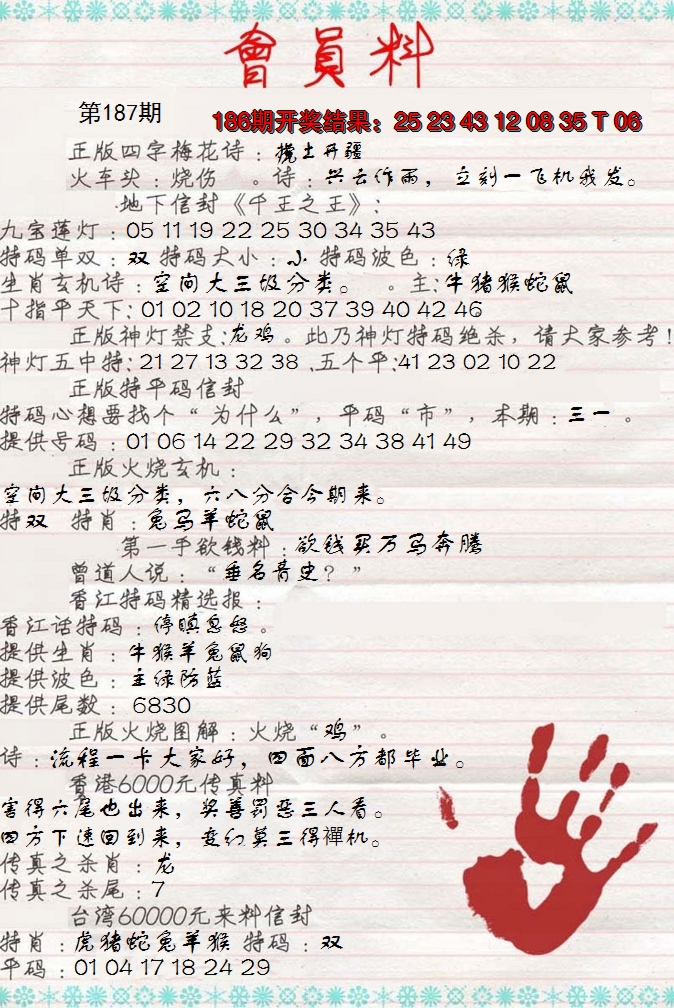 會員料
第187期
186期开奖结果：25 23 43 12 08 35 T 06
正版四字梅花诗：搅土开疆
火车头：烧伤 。诗：兴云作雨，立刻一飞机我发。
地下信封《千王之王》：
九宝莲灯：05 11 19 22 25 30 34 35 43
特码单双：双 特码大小：小 特码波色：绿
生肖玄机诗：空间大三级分类。 。主：牛猪猴蛇鼠
十指平天下：01 02 10 18 20 37 39 40 42 46
正版神灯禁支：龙鸡。此乃神灯特码绝杀，请大家参考！
神灯五中特：21 27 13 32 38 、五个平：41 23 02 10 22
正版特平码信封
特码心想要找个“为什么”，平码“市”，本期：三一 。
提供号码：01 06 14 22 29 32 34 38 41 49
正版火烧玄机：
空间大三级分类，六八分合今期来。
特双 特肖：兔马羊蛇鼠
第一手欲钱料：欲钱买万马奔腾
曾道人说：“垂名青史？”
香江特码精选报：
香江话特码：停瞋息怒 。
提供生肖：牛猴羊兔鼠狗
提供波色：主绿防蓝
提供尾数：6830
正版火烧图解：火烧“鸡”。
诗：流程一卡大家好，四面八方都毕业。
香港6000元传真料
害得六尾也出来，奖善罚恶三人看。
四方下速回到来，变幻莫三得禪机。
传真之杀肖：龙
传真之杀尾：7
台湾60000元来料信封
特肖：虎猪蛇兔羊猴 特码：双
平码：01 04 17 18 24 29